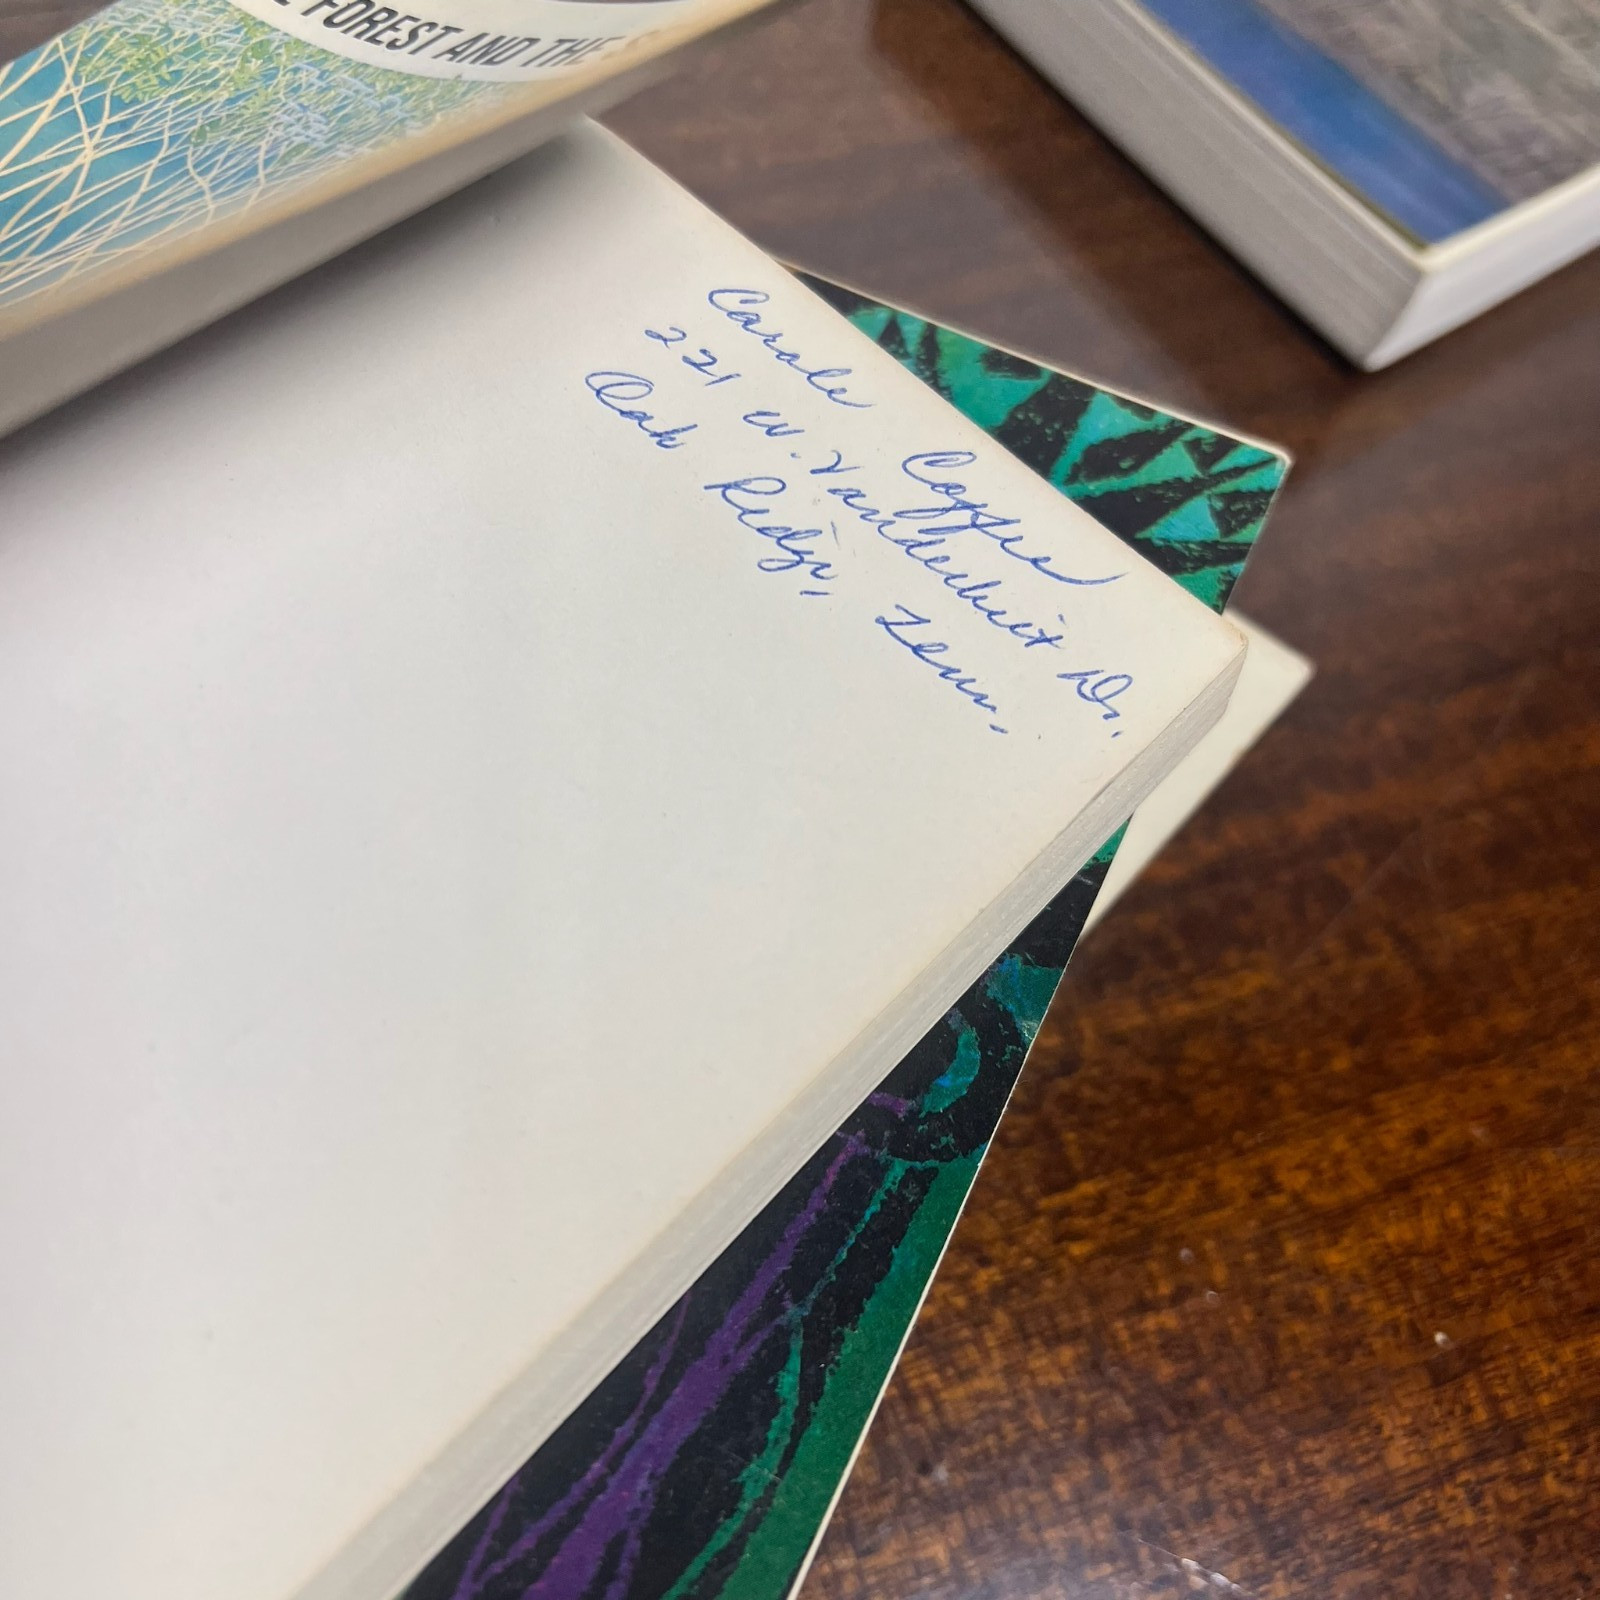 FOREST AND THE
Carole Coffee
221 W. Vanderbuit Dr.
Oak Ridge, Tenn.